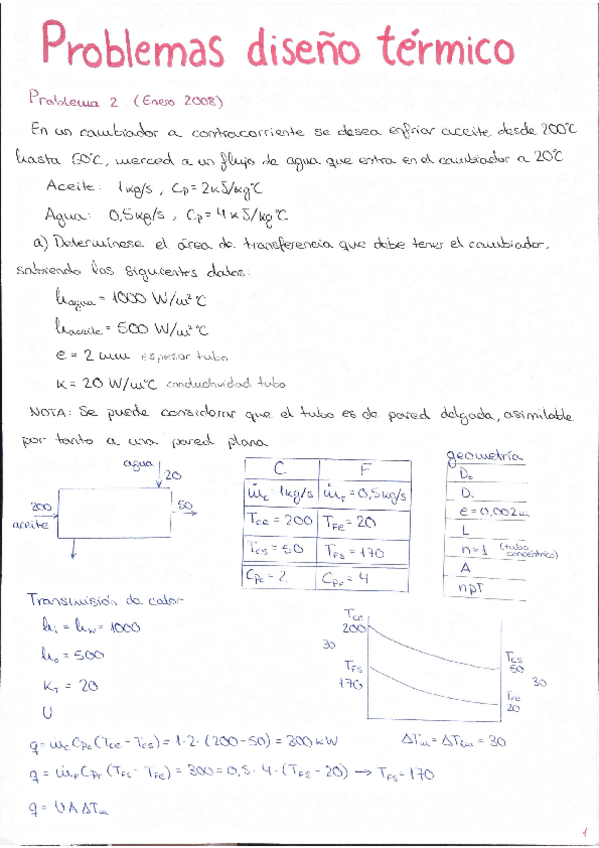 Problemas diseño térmico
Problema 2 (Enero 2008)
En un cambiador a contracorriente se desea enfriar aceite desde 200°C
hasta 50°C, merced a un flujo de agua que entra en el cambiador a 20°C
Aceite: 1kg/s, Cp = 2kJ/kg°C
Agua: 0,5kg/s, Cp = 4kJ/kg°C
a) Determínese el área de transferencia que debe tener el cambiador,
sabiendo los siguientes datos:
hagua = 1000 W/m²°C
haceite = 500 W/m²°C
e = 2mm espesor tubo
K = 20 W/m°C conductividad tubo
NOTA: Se puede considerar que el tubo es de pared delgada, asimilable
por tanto a una pared plana
agua
20
200
aceite
50
C F
ṁc = 1kg/s ṁF = 0,5kg/s
Tce = 200 TFe = 20
Tcs = 50 TFs = 170
Cpc = 2 CpF = 4
geometría
Do
Di
e = 0,002m
L
n = 1 (tubos concéntricos)
A
npT
Transmisión de calor
hi = hw = 1000
ho = 500
KT = 20
U
Tce
200
30
TFs
170
Tcs
50
30
TFe
20
q = ṁc Cpc (Tce - Tcs) = 1·2·(200-50) = 300kW
ΔTm = ΔTlm = 30
q = ṁF CpF (TFs - TFe) = 300 = 0,5·4·(TFs - 20) → TFs = 170
q = UAΔTlm
1